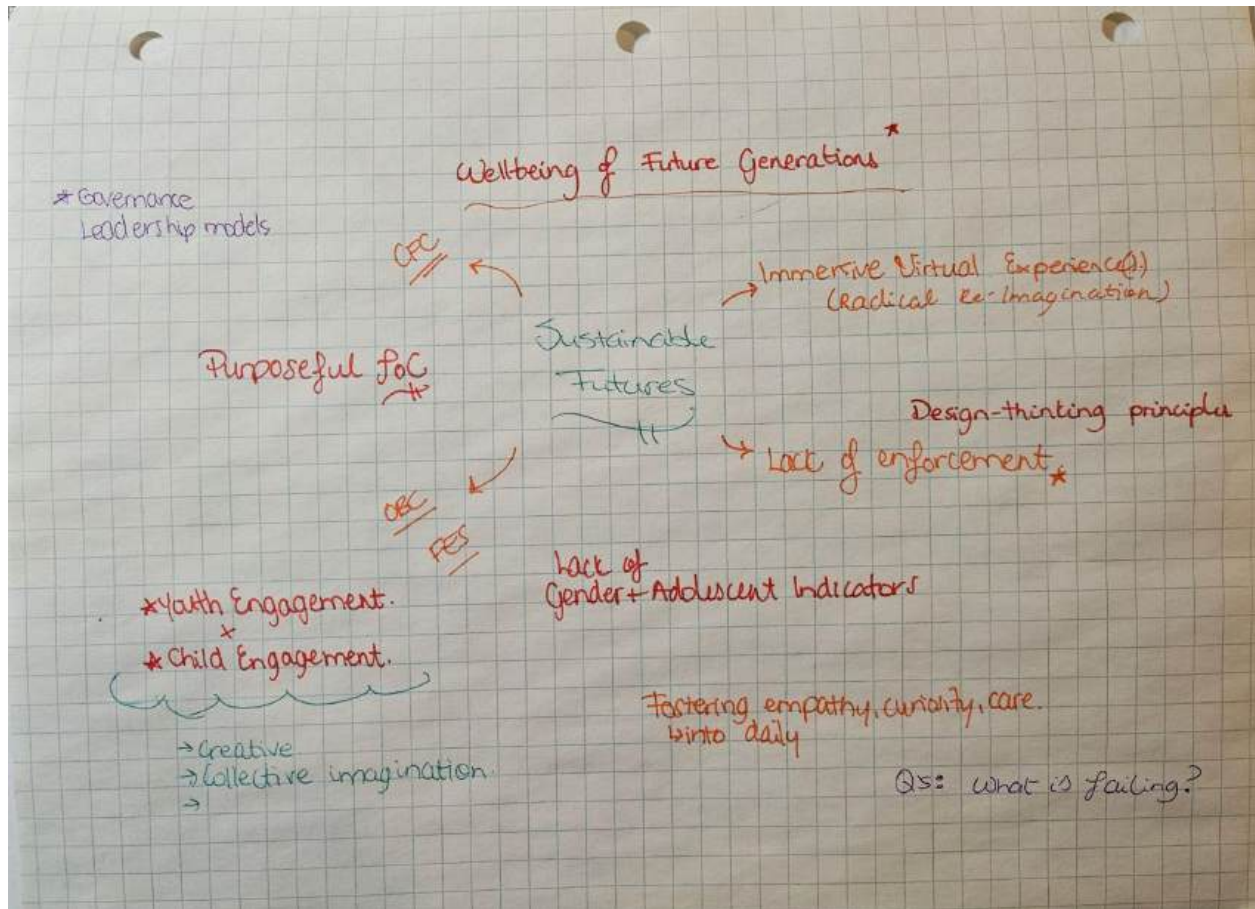 Wellbeing of Future Generations *
* Governance
Leadership models
Immersive Virtual Experience(s)
(Radical Re-Imagination)
Sustainable
Futures
Purposeful
Design-thinking
* Lack of enforcement *
OBC
PES
Lack of
Gender + Adolescent Indicators
* Youth Engagement.
+
* Child Engagement.
→ Creative
→ Collective imagination
→
Fostering empathy, curiosity, care.
↳ into daily
Qs: What is failing?